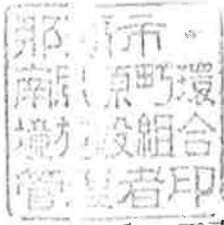 那覇市
南風原町環
境施設組合
管理者印